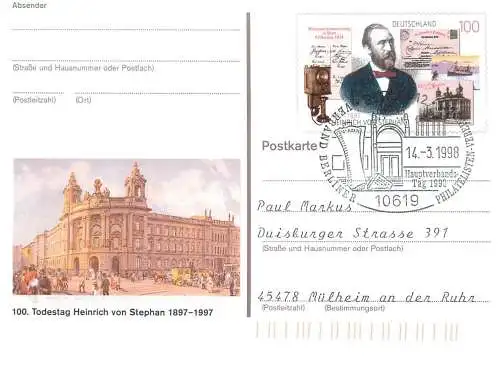 Absender
(Straße und Hausnummer oder Postfach)
(Postleitzahl) (Ort)
100. Todestag Heinrich von Stephan 1897–1997
DEUTSCHLAND 100
HEINRICH VON STEPHAN
Postkarte
VERBAND BERLINER PHILATELISTEN-VEREINE
14.-3.1998
Hauptverbands-
Tag 1998
10619
Paul Markus
Duisburger Strasse 391
(Straße und Hausnummer oder Postfach)
45478 Mülheim an der Ruhr
(Postleitzahl) (Bestimmungsort)